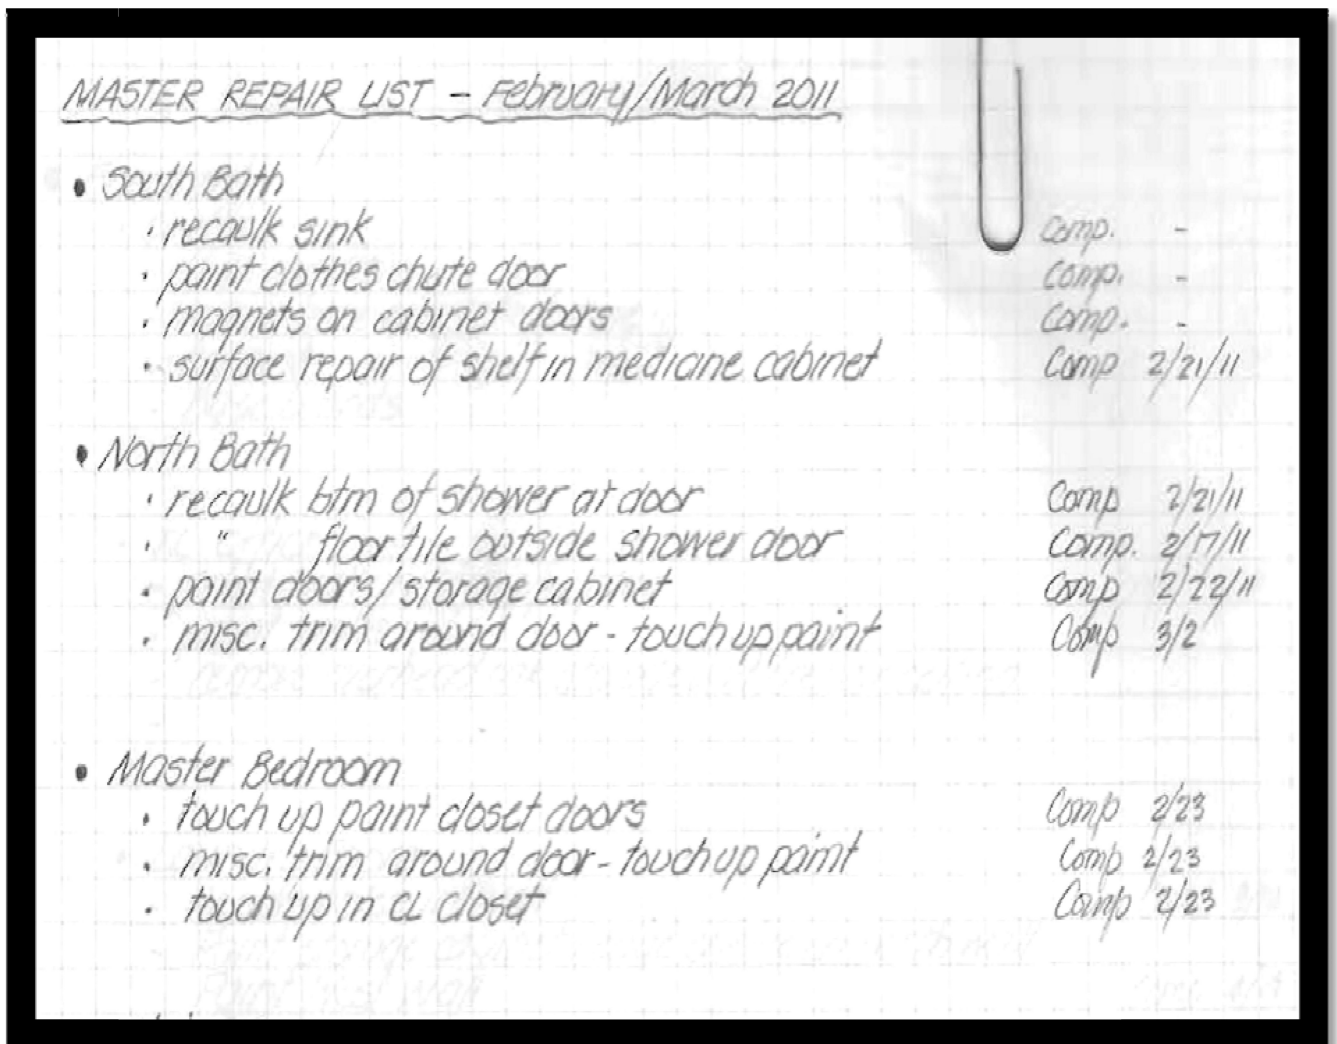 MASTER REPAIR LIST - February/March 2011
• South Bath
· recaulk sink Comp. -
· paint clothes chute door Comp. -
· magnets on cabinet doors Comp. -
· surface repair of shelf in medicine cabinet Comp 2/21/11
• North Bath
· recaulk btm of shower at door Comp 2/21/11
· " floor tile outside shower door Comp. 2/17/11
· paint doors/storage cabinet Comp 2/22/11
· misc. trim around door - touch up paint Comp 3/2
• Master Bedroom
· touch up paint closet doors Comp 2/23
· misc. trim around door - touch up paint Comp 2/23
· touch up in CL closet Comp 2/23